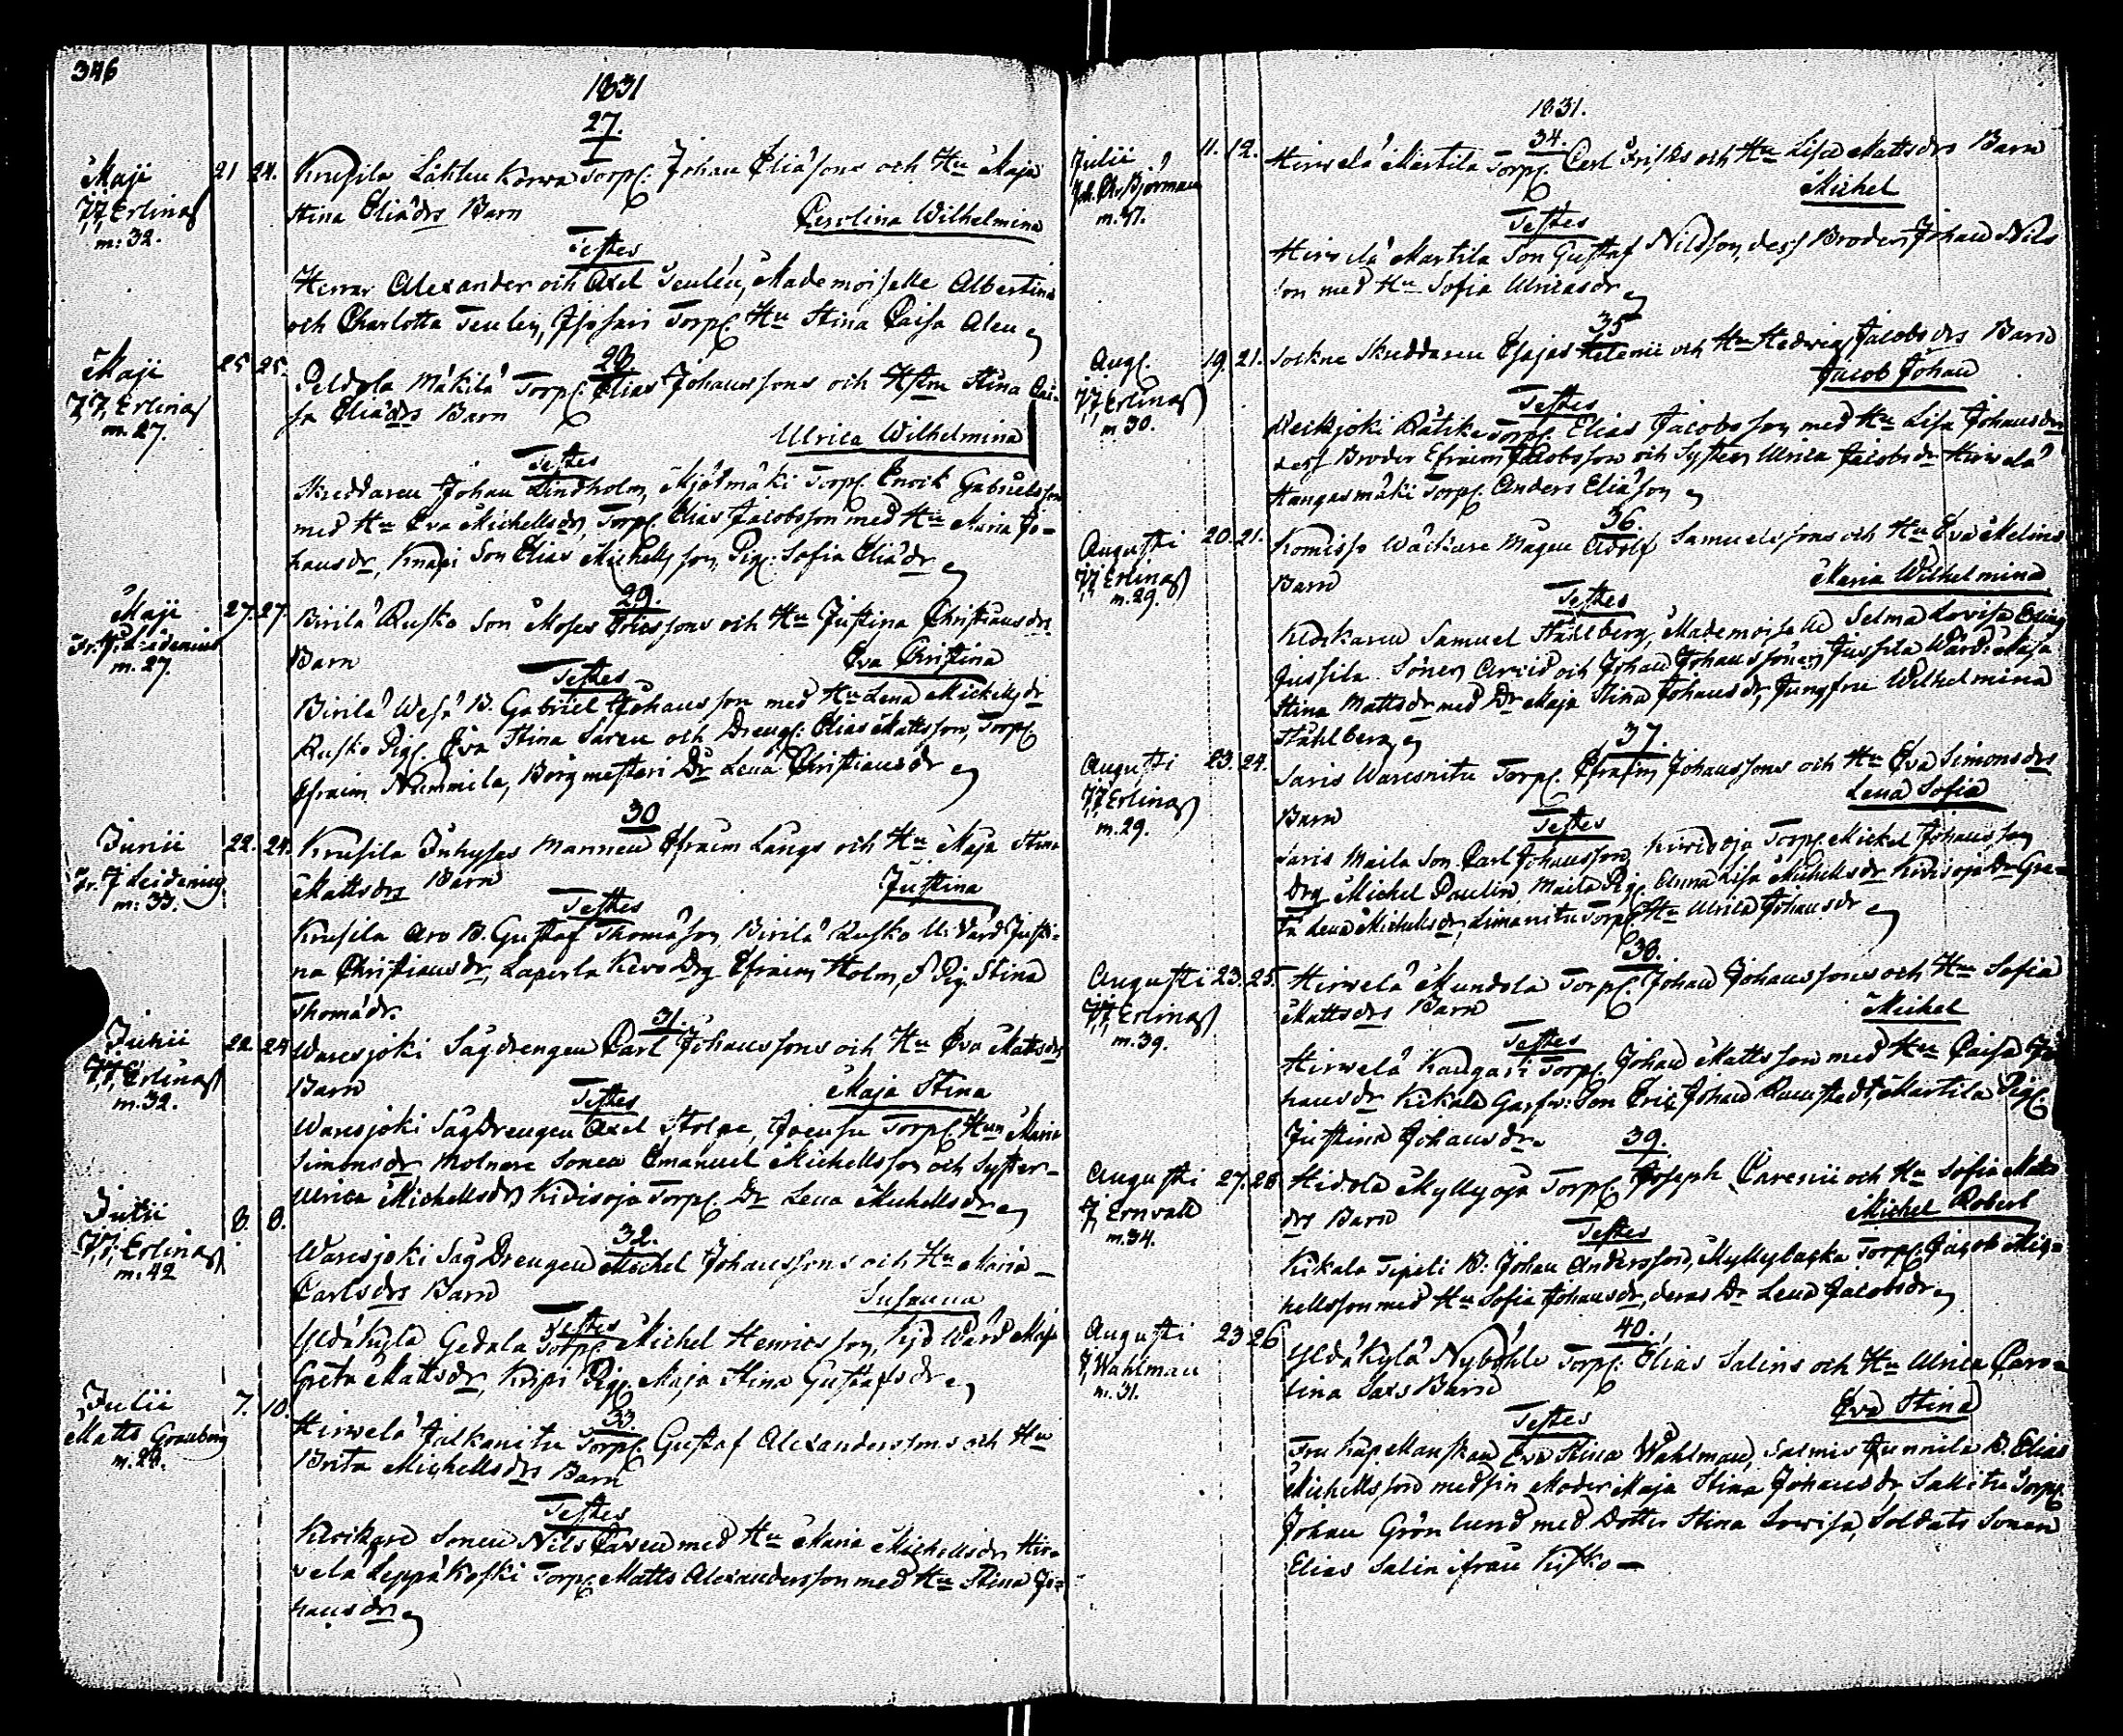 346
1831
27.
Maji 21 24. Krusila Lähten Korwa Torp. Johan Eliäsons och Hu Maja
J J Erling Stina Eliädrs Barn Carolina Wilhelmina
m: 32.
Testes
Herrar Alexander och Axel Teulén, Mademoiselle Albertina
och Charlotta Teulen, Torp. Hu Stina Caisa Alen
28
Maji 25 25. Peldola Mäkilä Torp. Elias Johanssons och Stina Cai-
J J Erling sa Eliädrs Barn
m. 27. Ulrica Wilhelmina
Testes
Skreddaren Johan Lindholm, Torp. Enrik Gabrielsson
med Hu Eva Michelsdr, Torp. Elias Jacobsson med Hu Maria Jo-
hansdr, Knapi Son Elias Michelsson, Pig. Sofia Eliädr
29.
Maji 27. 27. Birilä Rusko Son Moses Ericssons och Hu Justina Christiansdrs
m. 27. Barn Eva Christina
Testes
Birilä Wesä B. Gabriel Johansson med Hu Lena Michelsdr
Rusko Pig. Eva Stina Saren och Dreng. Elias Mattsson, Torp.
Efraim Nummila, Borgmestari Dr Lena Christiansdr
30
Junii 22. 24. Krusila Inhyses Mannen Efraim Längs och Hu Maja Stina
m: 33. Mattsdrs Barn Justina
Testes
Krusila Aro B. Gustaf Thomäson, Birilä Rusko Justi-
na Christiansdr, Laperla Kero Drg Efraim Holm, Pig. Stina
Thomädr.
31.
Junii 22 24 Waresjoki Sågdrengen Carl Johanssons och Hu Eva Mattsdrs
J J Erling Barn Maja Stina
m. 32.
Testes
Waresjoki Sågdrengen Axel Stolpe, Torp. Hun Maria
Simonsdr Molnare Sonen Emanuel Michelsson och Syster-
Ulrica Michelsdr, Kidisoja Torp. Dr Lena Michelsdr
32.
Julii 8. 8. Waresjoki Såg Drengen Michel Johanssons och Hu Maria
J J Erling
m. 42 Carlsdrs Barn Susanna
Testes
Yldäkylä Gedala Torp. Michel Henricsson, Wärd Maja
Greta Mattsdr, Pig. Maja Stina Gustafsdr
33
Julii 7. 10. Hirwelä Jalkanitu Torp. Gustaf Alexanderssons och Hu
Matts Granberg Brita Michelsdrs Barn
m. 28.
Testes
Klockare Sonen Nils Caren med Hu Maria Michelsdr Hir-
velä Leppäkoski Torp. Matts Alexandersson med Hu Stina Jo-
hansdr
1831.
34.
Julii 11. 12. Hirwelä Martila Torp. Carl Frisks och Hu Lisa Mattsdrs Barn
Joh. Chr. Bjorman Michel
m. 37.
Testes
Hirwelä Martila Son Gustaf Nilsson, dess Broder Johan Nils
son med Hu Sofia Ulricasdr
35
Aug. 19. 21. Sockne Skreddaren Esajas Helenii och Hu Hedwig Jacobsdrs Barn
J J Erling Jacob Johan
m 30.
Testes
Reikjoki Rätike Torp. Elias Jacobsson med Hu Lisa Johansdr
dess Broder Efraim Jacobsson och Syster Ulrica Jacobsdr Hirwelä
Hangasmäki Torp. Anders Eliäson
36.
Augusti 20. 21. Komisso Wäckare Mågen Adolf Samuelssons och Hu Eva Melins
J J Erling Barn Maria Wilhelmina
m. 29.
Testes
Klockaren Samuel Ståhlberg, Mademoiselle Selma Lovisa Erling
Jussila Söner Arvid och Johan Johanssöner, Jussila Wärd: Maja
Stina Mattsdr med Dr Maja Stina Johansdr, Jungfru Wilhelmina
Ståhlberg
37.
Augusti 23. 24. Saris Waresnitu Torp. Efraim Johanssons och Hu Eva Simonsdrs
J J Erling Barn Lena Sofia
m. 29.
Testes
Saris Maila Son Carl Johansson, Kidisoja Torp. Mickel Johansson
Drg Michel Paulin, Maila Pig. Anna Lisa Michelsdr Kidisoja Dr Gre-
ta Lena Michelsdr, Limanitu Torp. Hu Ulrica Johansdr
38.
Augusti 23. 25. Hirwelä Mundola Torp. Johan Johanssons och Hu Sofia
J J Erling Mattsdrs Barn Michel
m. 39.
Testes
Hirwelä Kangari Torp. Johan Mattsson med Hu Caisa Jo
hansdr Kikala Son Eric Johan Runstedt, Martila Pig.
Justina Johansdr
39.
Augusti 27. 28 Hidola Myllyoja Torp. Joseph Carenii och Hu Sofia Matts
J Ernvall drs Barn Michel Robert
m. 34.
Testes
Kikala Tipeti B. Johan Andersson, Myllylaska Torp. Jacob Mic-
helsson med Hu Sofia Johansdr, deras Dr Lena Jacobsdr
40.
Augusti 23 26 Yldäkylä Nyböhle Torp. Elias Salins och Hu Ulrica Caro-
J, Wahlman lina Saxs Barn
m. 31. Eva Stina
Testes
Fru Kap. Manskan Eva Stina Wahlman, Salmis Junnila B. Elias
Michelsson med sin Moder Maja Stina Johansdr, Torp.
Johan Grönlund med Dotter Stina Lovisa, Soldats Sonen
Elias Salin ifrån Kisko